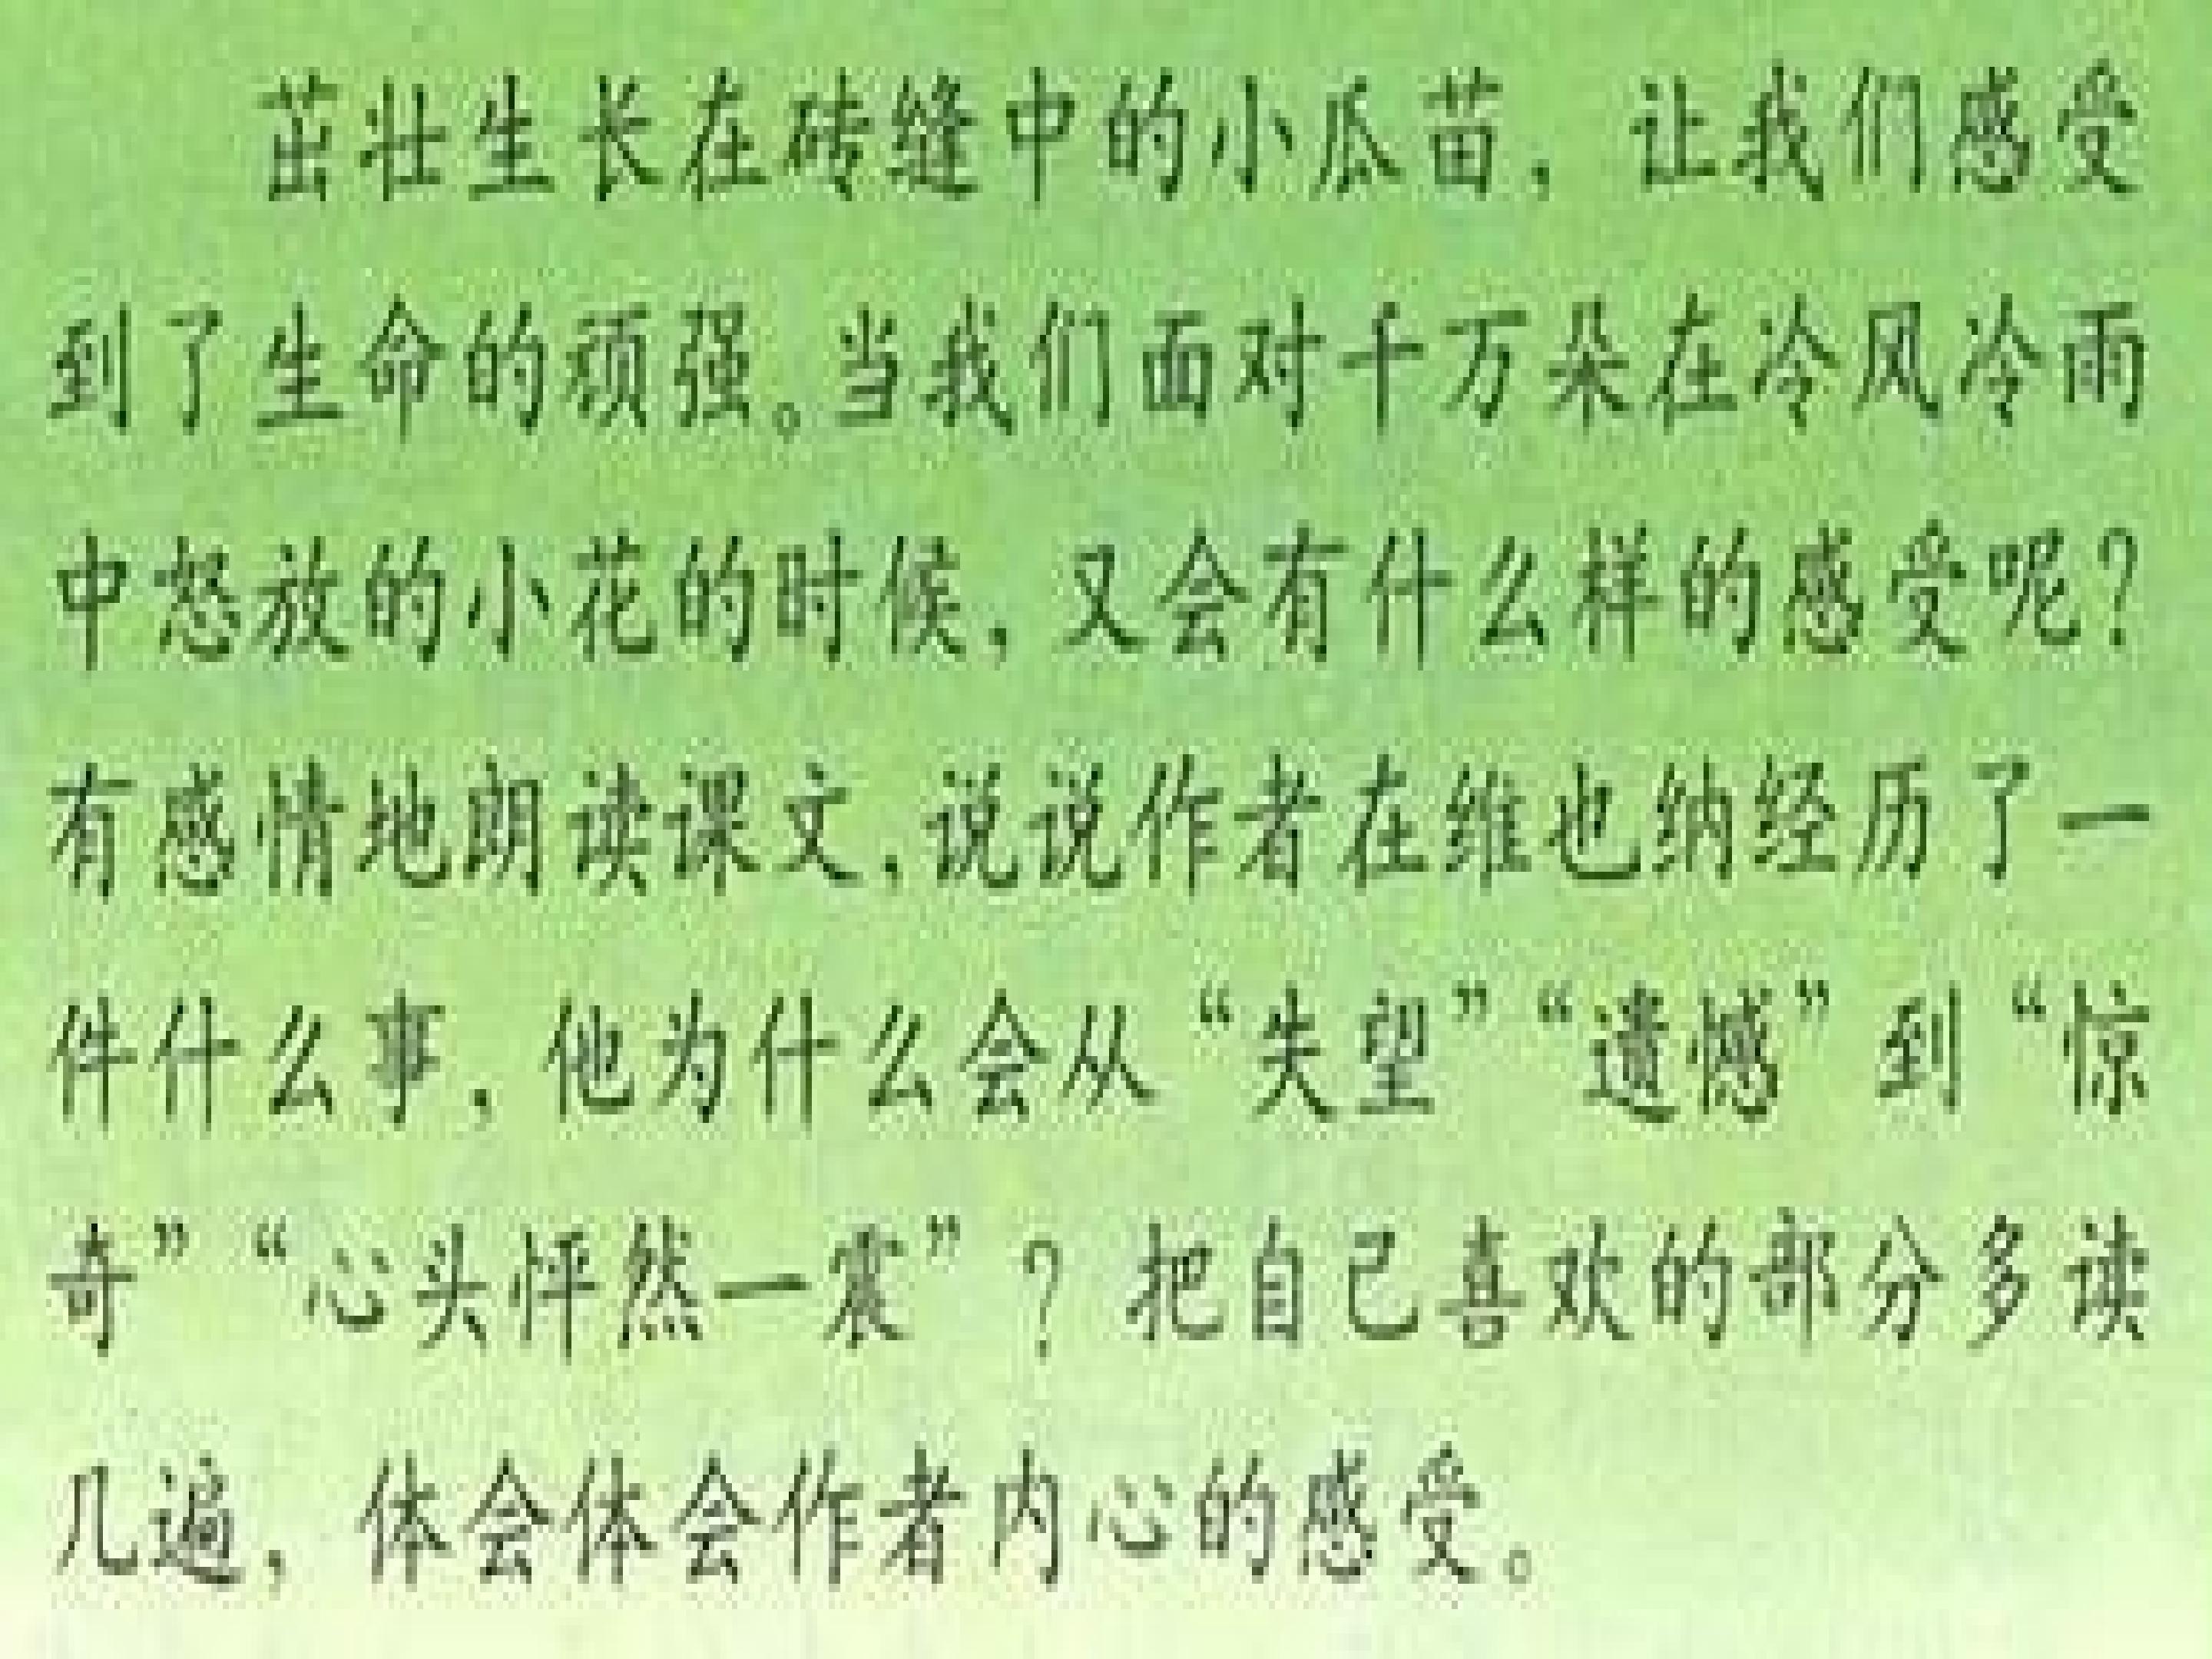 茁壮生长在砖缝中的小瓜苗，让我们感受
到了生命的顽强。当我们面对千万朵在冷风冷雨
中怒放的小花的时候，又会有什么样的感受呢？
有感情地朗读课文，说说作者在维也纳经历了一
件什么事，他为什么会从“失望”“遗憾”到“惊
奇”“心头怦然一震”？把自己喜欢的部分多读
几遍，体会体会作者内心的感受。